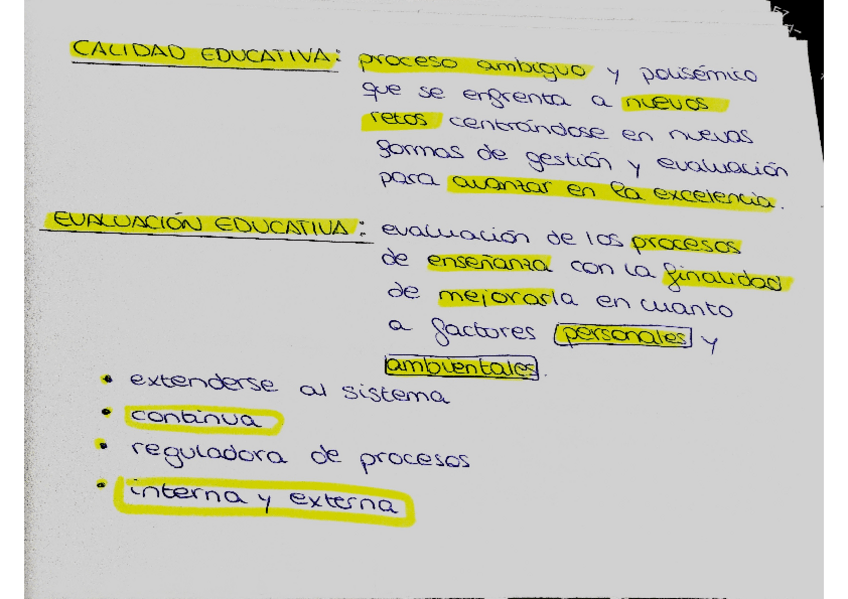 CALIDAD EDUCATIVA: proceso ambiguo y polisémico
que se enfrenta a nuevos
retos centrándose en nuevas
formas de gestión y evaluación
para avanzar en la excelencia.
EVALUACIÓN EDUCATIVA: evaluación de los procesos
de enseñanza con la finalidad
de mejorarla en cuanto
a factores personales y
ambientales.
• extenderse al sistema
• continua
• reguladora de procesos
• interna y externa